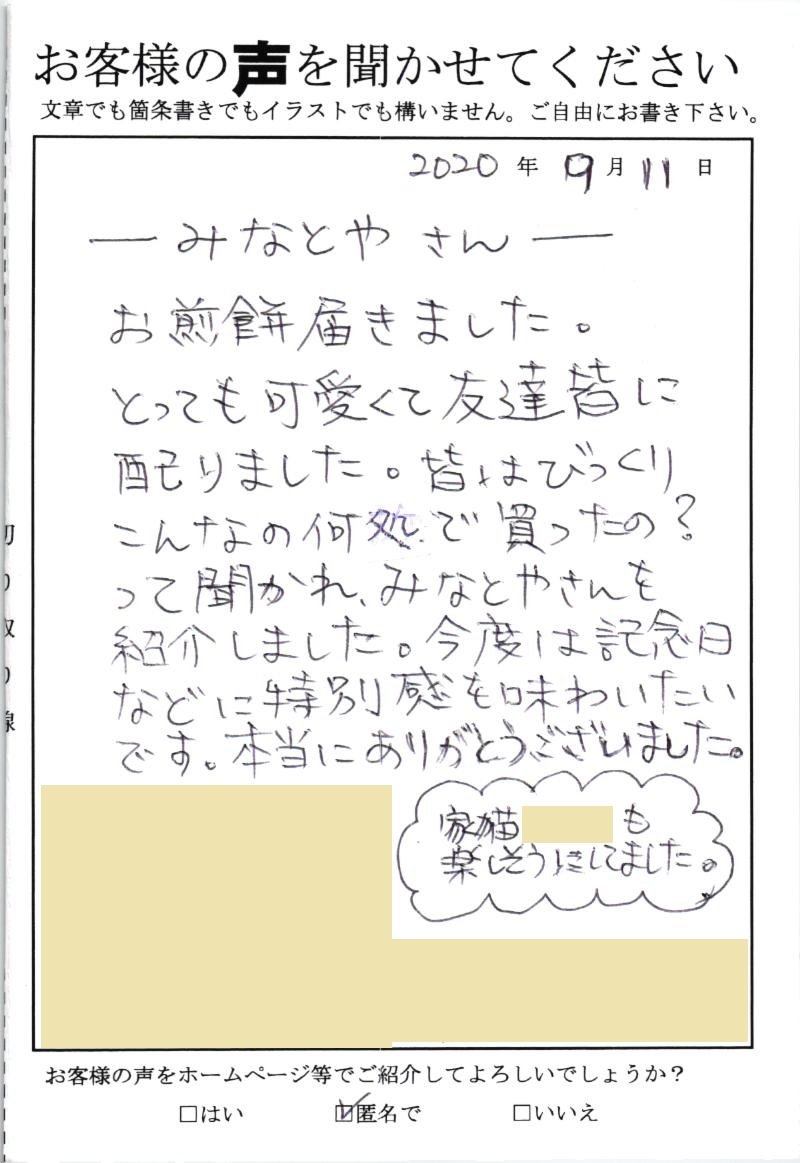 お客様の声を聞かせてください
文章でも箇条書きでもイラストでも構いません。ご自由にお書き下さい。
2020 年 9 月 11 日
― みなとや さん ―
お煎餅届きました。
とっても可愛くて友達皆に
配りました。皆はびっくり
こんなの何処で買ったの?
って聞かれ、みなとやさんを
紹介しました。今度は記念日
などに特別感を味わいたい
です。本当にありがとうございました。
家猫 も
楽しそうにしてました。
切り取り線
お客様の声をホームページ等でご紹介してよろしいでしょうか?
□はい ☑匿名で □いいえ